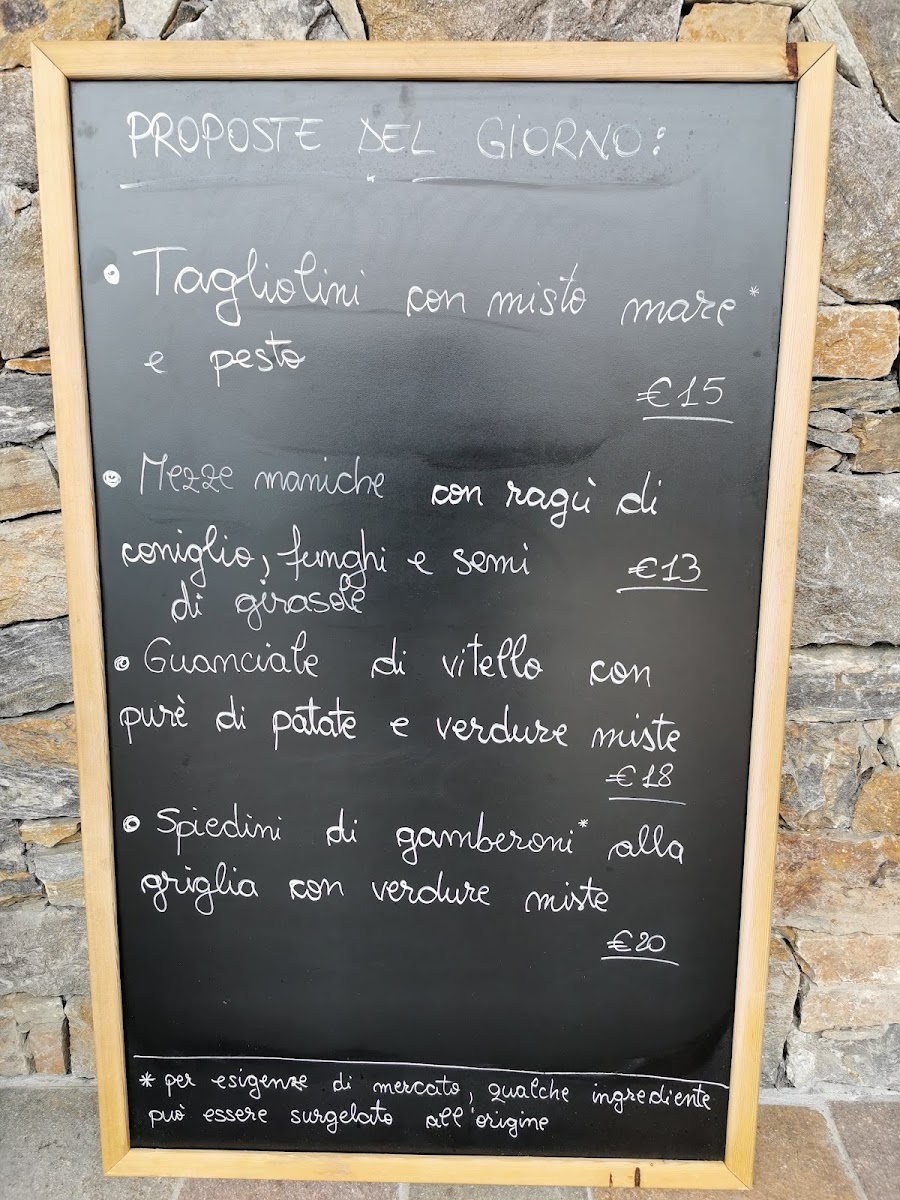 PROPOSTE DEL GIORNO:
• Tagliolini con misto mare*
e pesto
€15
• Mezze maniche con ragù di
coniglio, funghi e semi €13
di girasole
• Guanciale di vitello con
purè di patate e verdure miste
€18
• Spiedini di gamberoni* alla
griglia con verdure miste
€20
* per esigenze di mercato, qualche ingrediente
può essere surgelato all'origine